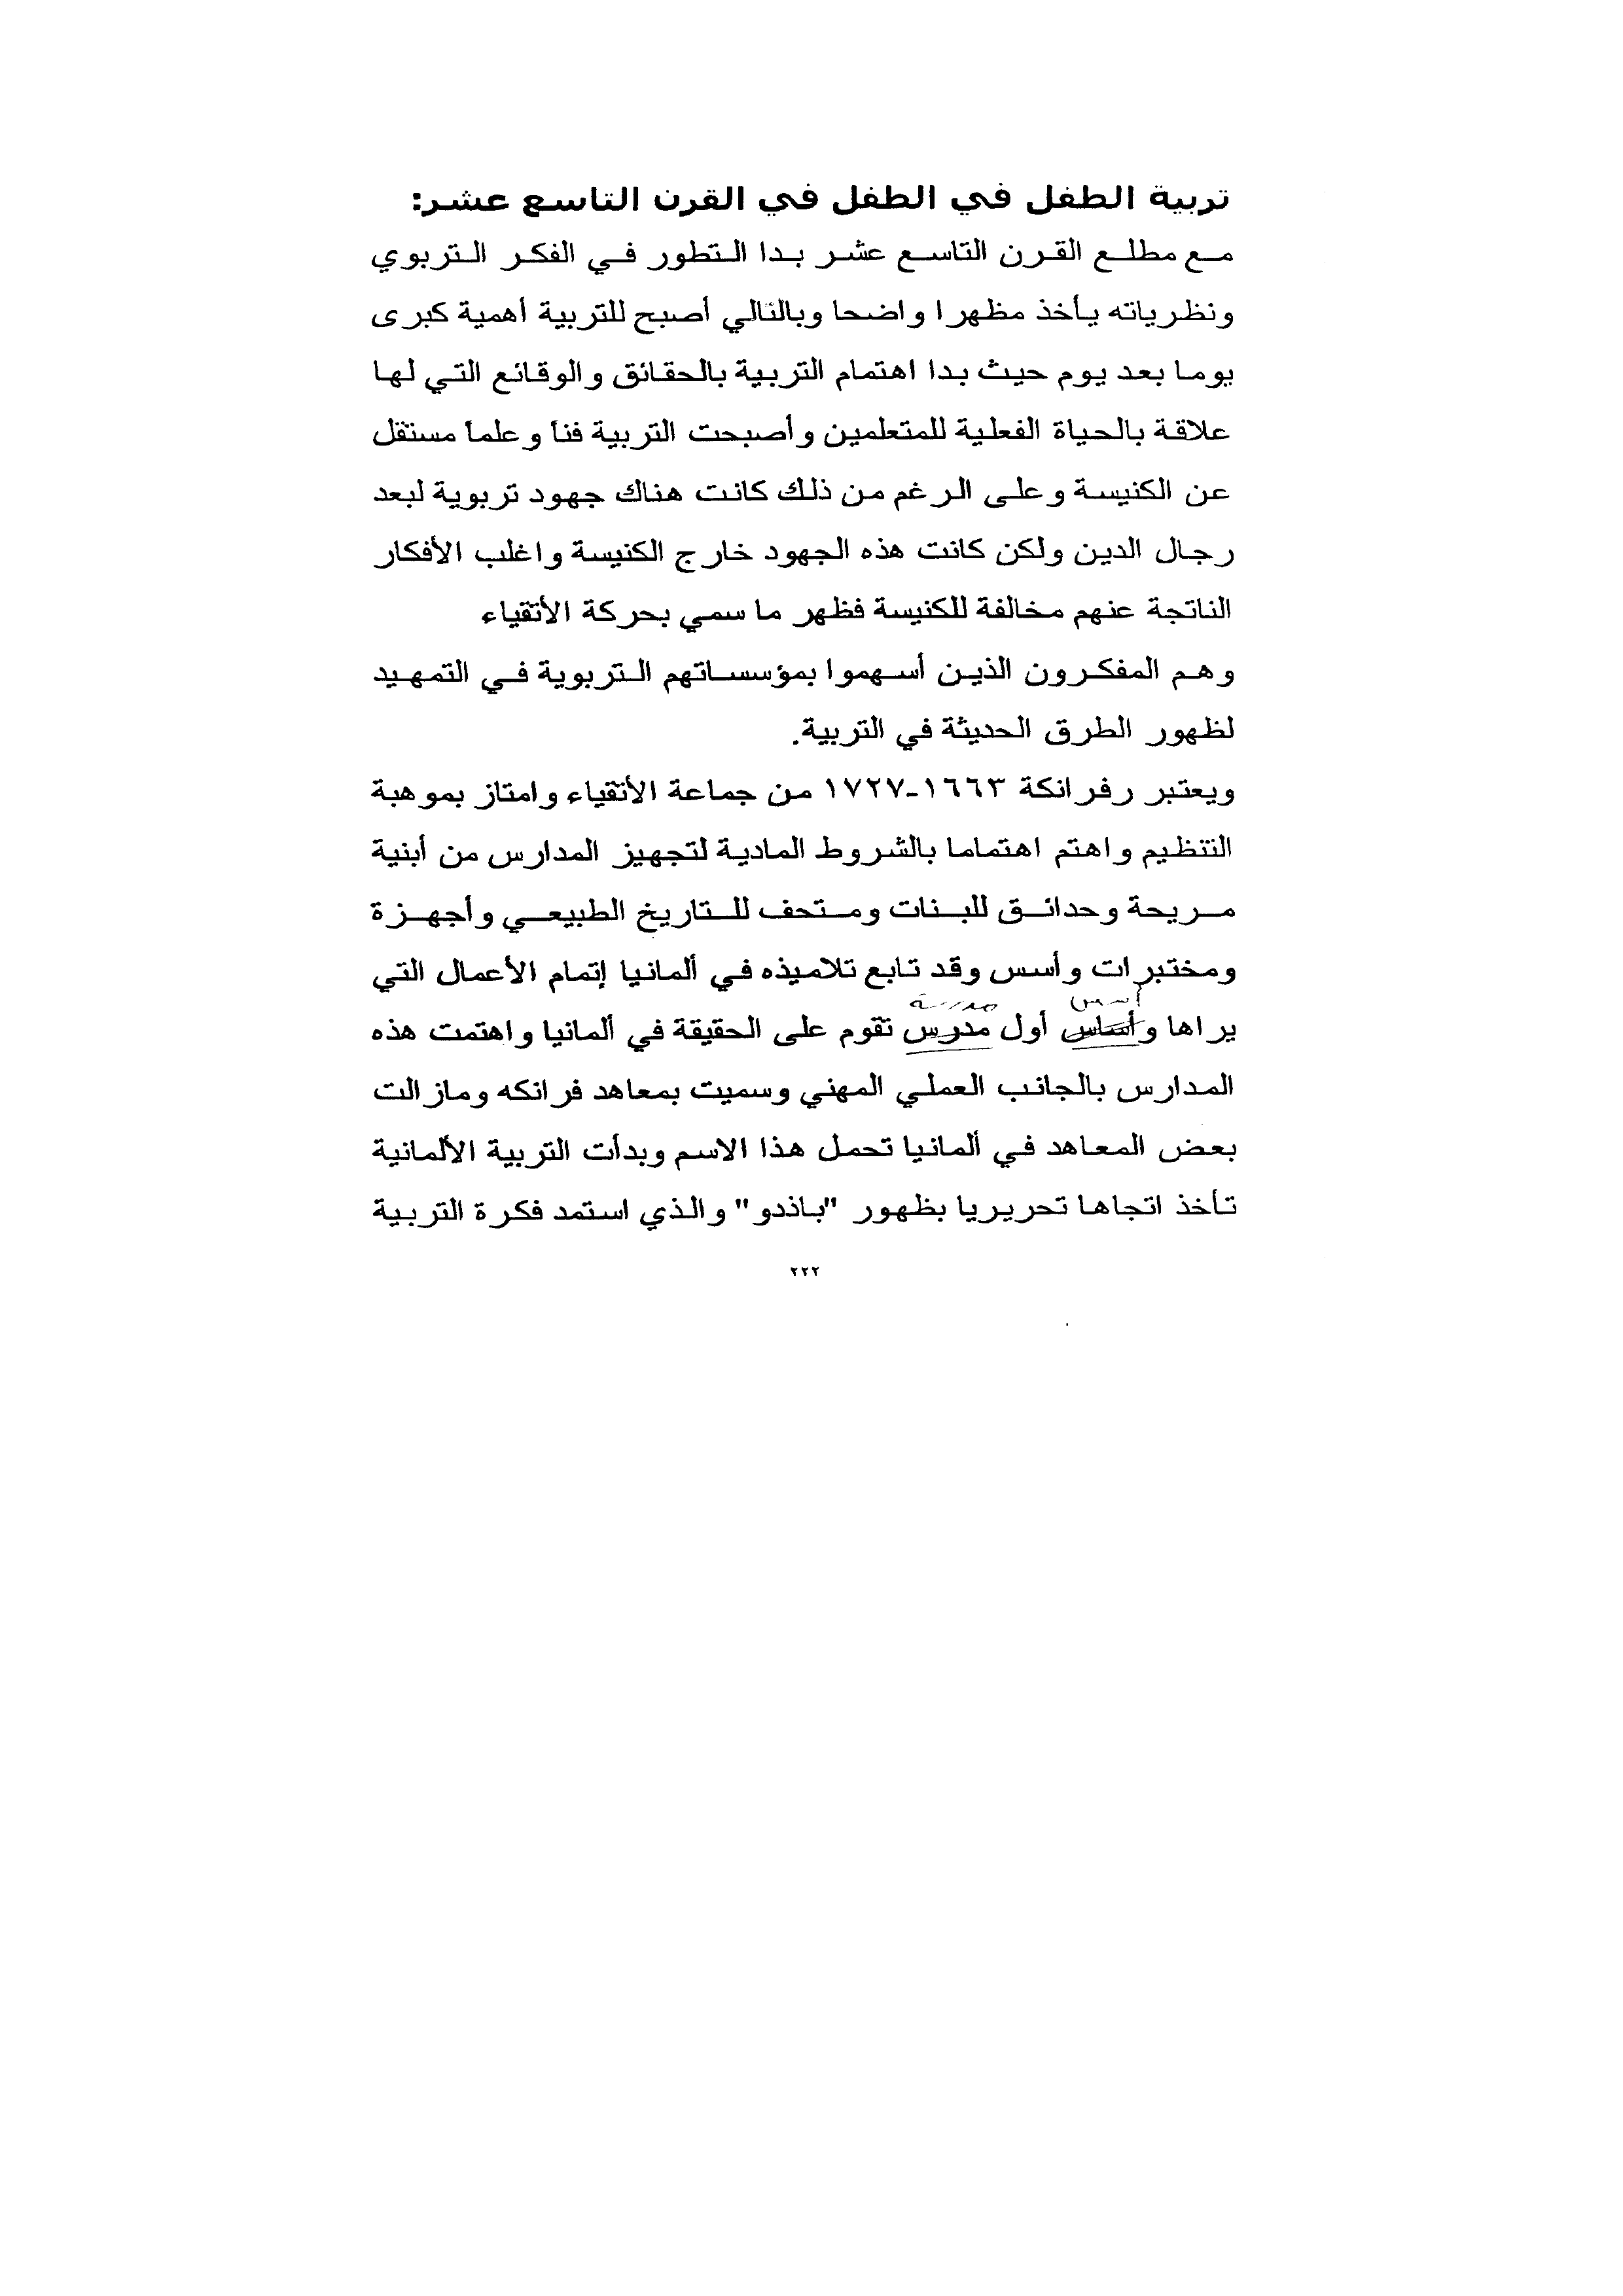 تربية الطفل في الطفل في القرن التاسع عشر:
مع مطلع القرن التاسع عشر بدا التطور في الفكر التربوي
ونظرياته يأخذ مظهرا واضحا وبالتالي أصبح للتربية أهمية كبرى
يوما بعد يوم حيث بدا اهتمام التربية بالحقائق والوقائع التي لها
علاقة بالحياة الفعلية للمتعلمين وأصبحت التربية فنا وعلما مستقل
عن الكنيسة وعلى الرغم من ذلك كانت هناك جهود تربوية لبعد
رجال الدين ولكن كانت هذه الجهود خارج الكنيسة واغلب الأفكار
الناتجة عنهم مخالفة للكنيسة فظهر ما سمي بحركة الأتقياء
وهم المفكرون الذين أسهموا بمؤسساتهم التربوية في التمهيد
لظهور الطرق الحديثة في التربية.
ويعتبر رفرانكة ١٦٦٣-١٧٢٧ من جماعة الأتقياء وامتاز بموهبة
التنظيم واهتم اهتماما بالشروط المادية لتجهيز المدارس من أبنية
مريحة وحدائق للبنات ومتحف للتاريخ الطبيعي وأجهزة
ومختبرات وأسس وقد تابع تلاميذه في ألمانيا إتمام الأعمال التي
أسس مدرسة
يراها وأساس أول مدرس تقوم على الحقيقة في ألمانيا واهتمت هذه
المدارس بالجانب العملي المهني وسميت بمعاهد فرانكه ومازالت
بعض المعاهد في ألمانيا تحمل هذا الاسم وبدأت التربية الألمانية
تأخذ اتجاها تحريريا بظهور "باذدو" والذي استمد فكرة التربية
٢٢٢